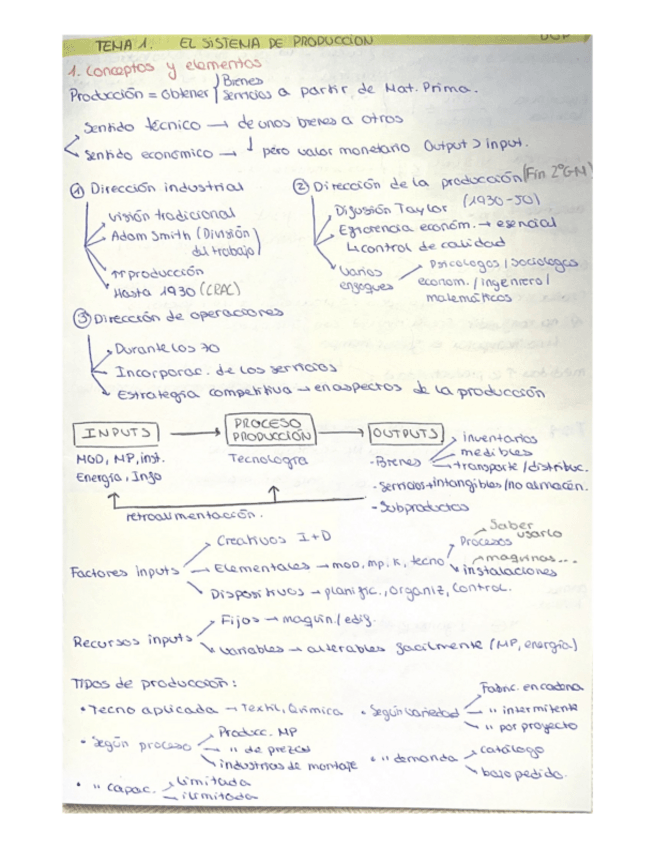 TEMA 1. EL SISTEMA DE PRODUCCIÓN
1. Conceptos y elementos
Producción = obtener Bienes Servicios a partir de Mat. Prima.
Sentido técnico → de unos bienes a otros
Sentido económico → ↓ pero valor monetario Output > input.
① Dirección industrial
visión tradicional
Adam Smith (División del trabajo)
↑↑ producción
Hasta 1930 (CRAC)
② Dirección de la producción (Fin 2ªGM)
Difusión Taylor (1930-50)
Eficiencia económ. → esencial
↳ control de calidad
Varios enfoques
Psicólogos / sociólogos
econom. / ingeniero /
matemáticos
③ Dirección de operaciones
Durante los 70
Incorporac. de los servicios
Estrategia competitiva → en aspectos de la producción
INPUTS → PROCESO PRODUCCIÓN → OUTPUTS
MOD, MP, inst.
Energía, Info
Tecnología
- Bienes
inventarios
medibles
transporte / distribuc.
- Servicios → intangibles / no almacén.
- Subproductos
retroalimentación.
Factores inputs
Creativos I+D
Elementales → MOD, mp, K, tecno
Procesos
Saber usarlo
maquinas...
instalaciones
Dispositivos → planific., organiz, control.
Recursos inputs
Fijos → maquin. / edif.
Variables → alterables facilmente (MP, energía)
Tipos de producción:
• Tecno aplicada → Textil, Química
• Según variedad
Fabric. en cadena
" intermitente
" por proyecto
• Según proceso
Producc. MP
" de piezas
industrias de montaje
• " demanda
catálogo
bajo pedido.
• " capac.
limitada
ilimitada